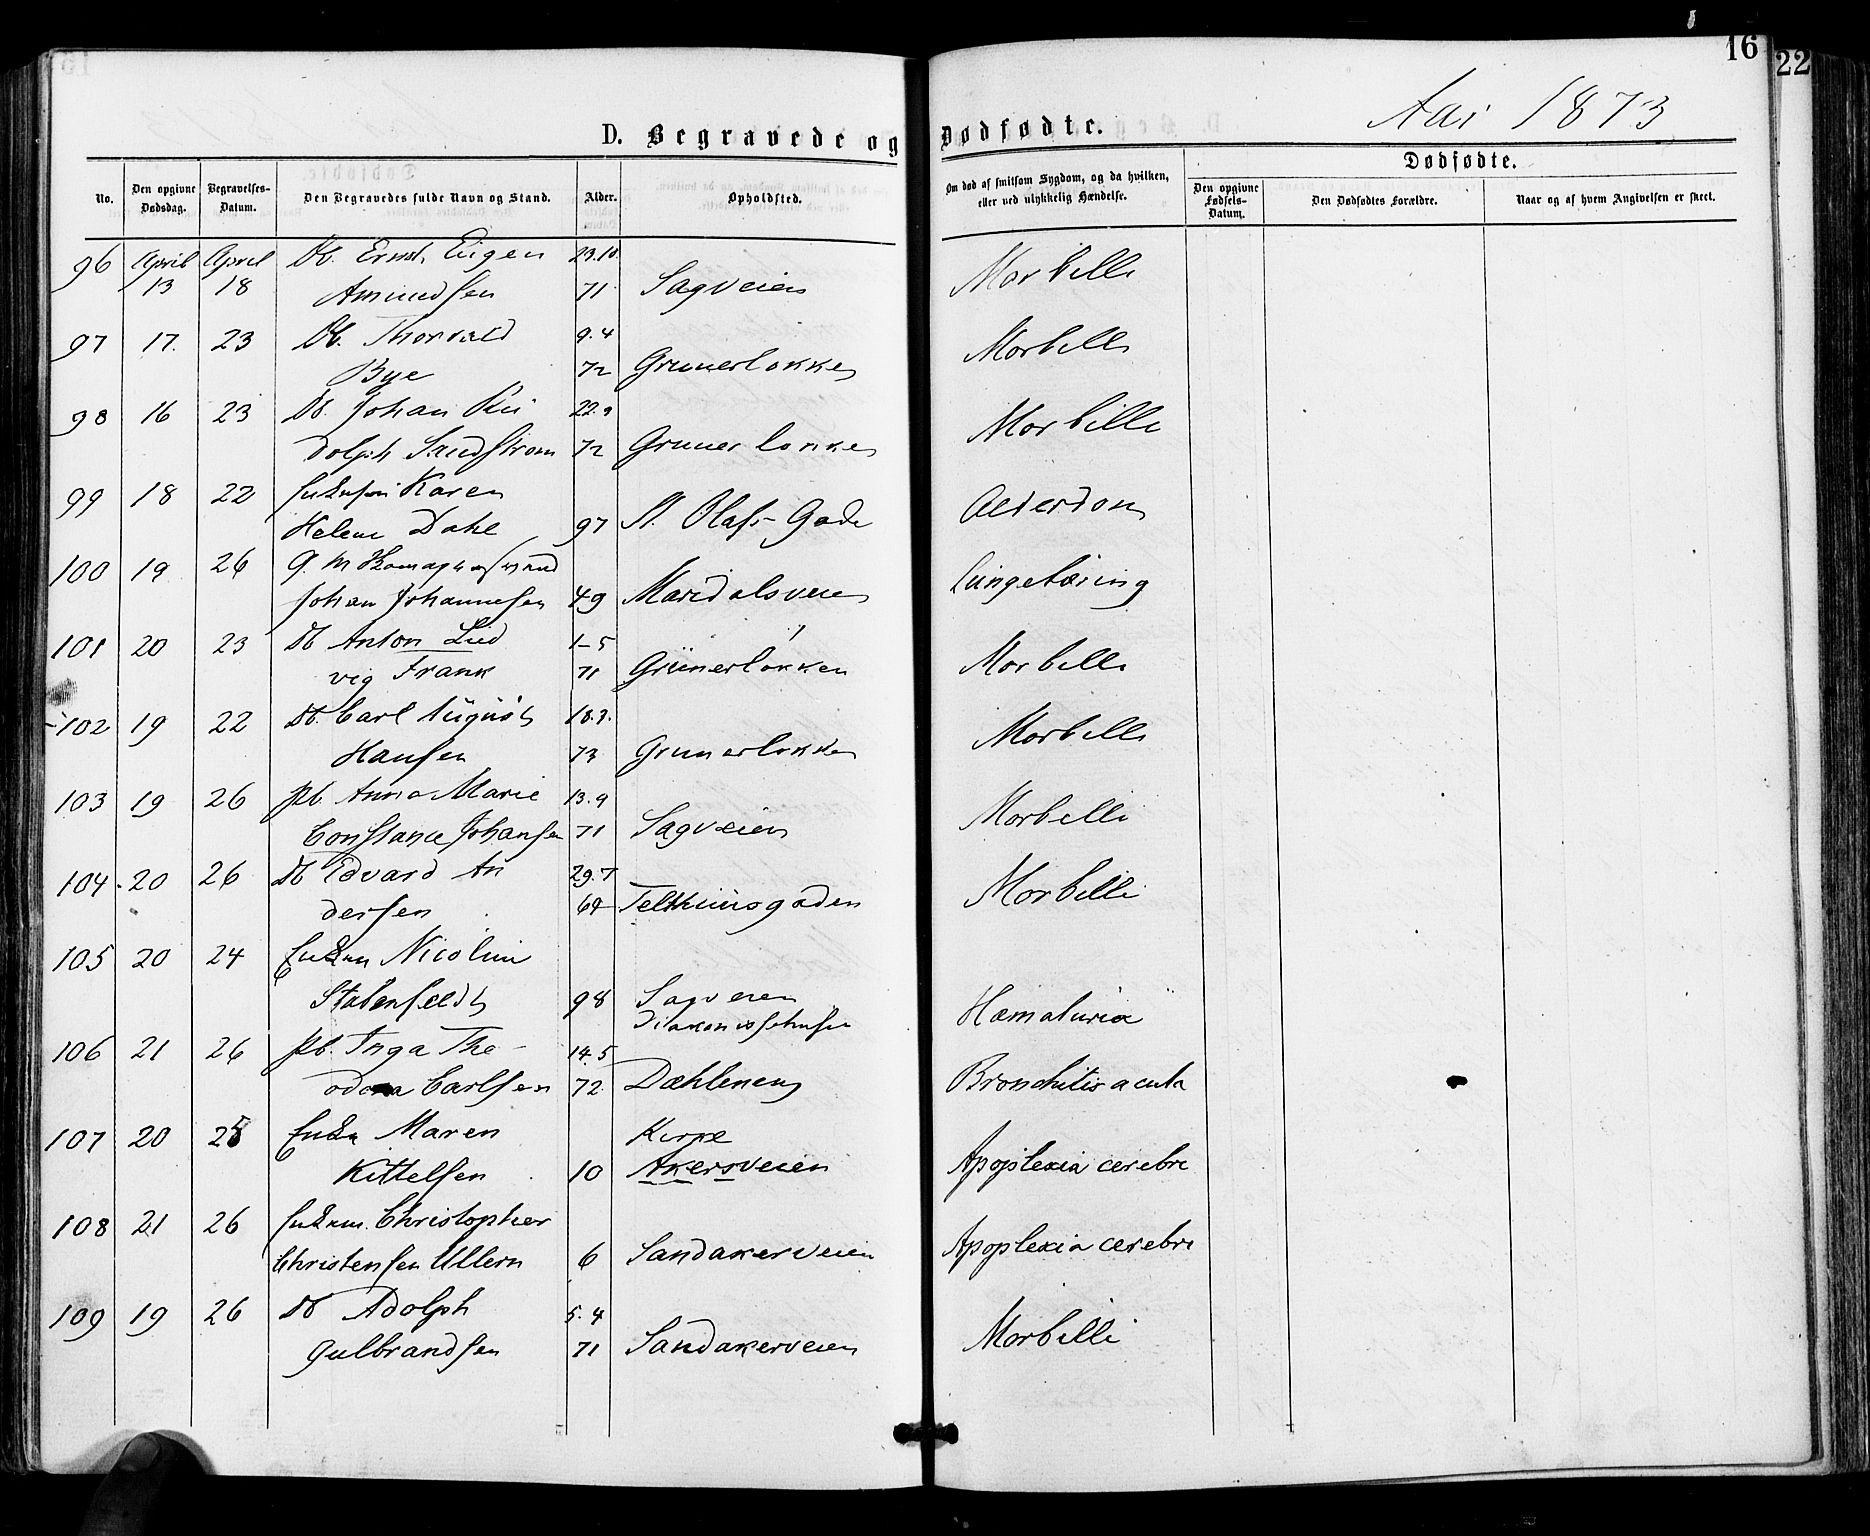 16
22
Aar 1873
D. Begravede og Dødfødte.
No.
Den opgivne Dødsdag.
Begravelses-Datum.
Den Begravedes fulde Navn og Stand.
Alder.
Opholdsted.
Om død af smitsom Sygdom, og da hvilken, eller ved ulykkelig Hændelse.
Dødfødte.
Den opgivne Fødsels-Datum.
Den Dødfødtes Forældre.
Naar og af hvem Angivelsen er skeet.
96 April April Db. Ernst Eugen 23.10.
13 18 Amundsen 71 Sagveien Morbilli
97 17. 23 Db. Thorvald 9.4
Bye 72 Grunerløkken Morbilli
98 16 23 Db. Johan Ru 22.9
dolph Sandstrøm 72 Grunerløkken Morbilli
99 18 22 Karen
Helene Dahl 97 St. Olafs Gade Alderdom
100 19 26 G. M.
Johan Johannesen 49 Maridalsveien Lungetæring
101 20 23 Db Anton Lud 1-5
vig Frank 71 Grünerløkken Morbilli
102 19 22 Db. Carl August 18.3.
Hansen 73 Grunerløkken Morbilli
103 19 26 Pb. Anna Marie 13.9
Constance Johansen 71 Sagveien Morbilli
104 20 26 Db Edvard An 29.7
dersen 69 Telthusgaden Morbilli
105 20 24 Nicoline
Stabenfeldt 98 Sagveien Hæmaturia
106 21 26 Pb. Inga The- 14.5
odora Carlsen 72. Dæhleneng Bronchitis acuta
107 20 25 Maren Kirke
Kittelsen 10 Akersveien Apoplexia cerebri
108 21 26 Christopher
Christensen Ullern 6 Sandakerveien Apoplexia cerebri
109 19 26 Db Adolph 5.4
Gulbrandsen 71 Sandakerveien Morbilli